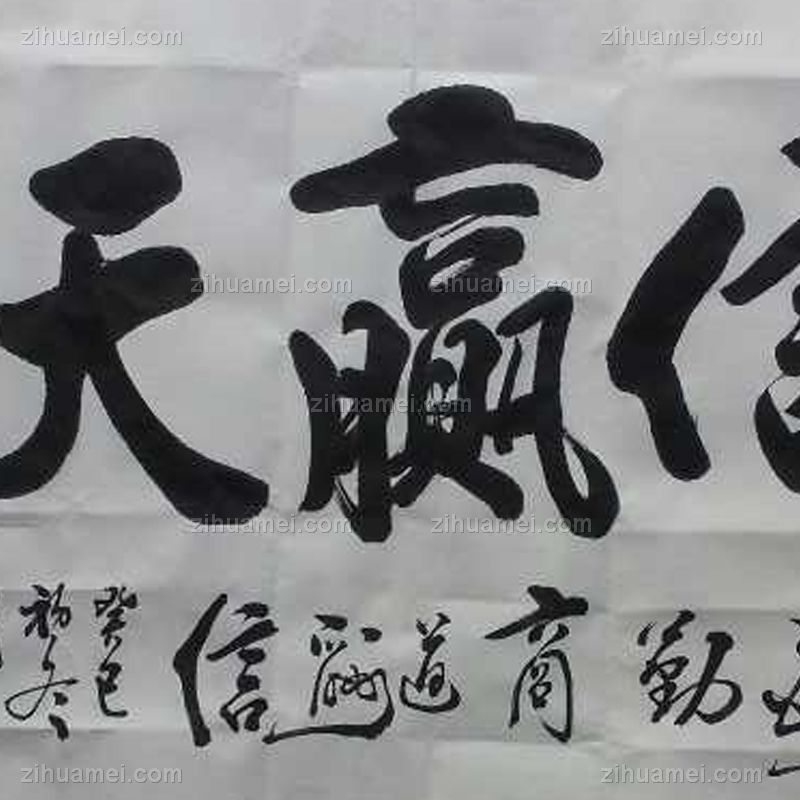 zihuamei.com zihuamei.com
信赢天
zihuamei.com zihuamei.com
zihuamei.com
zihuamei.com zihuamei.com
勤商道酬信
癸巳
初冬
zihuamei.com zihuamei.com